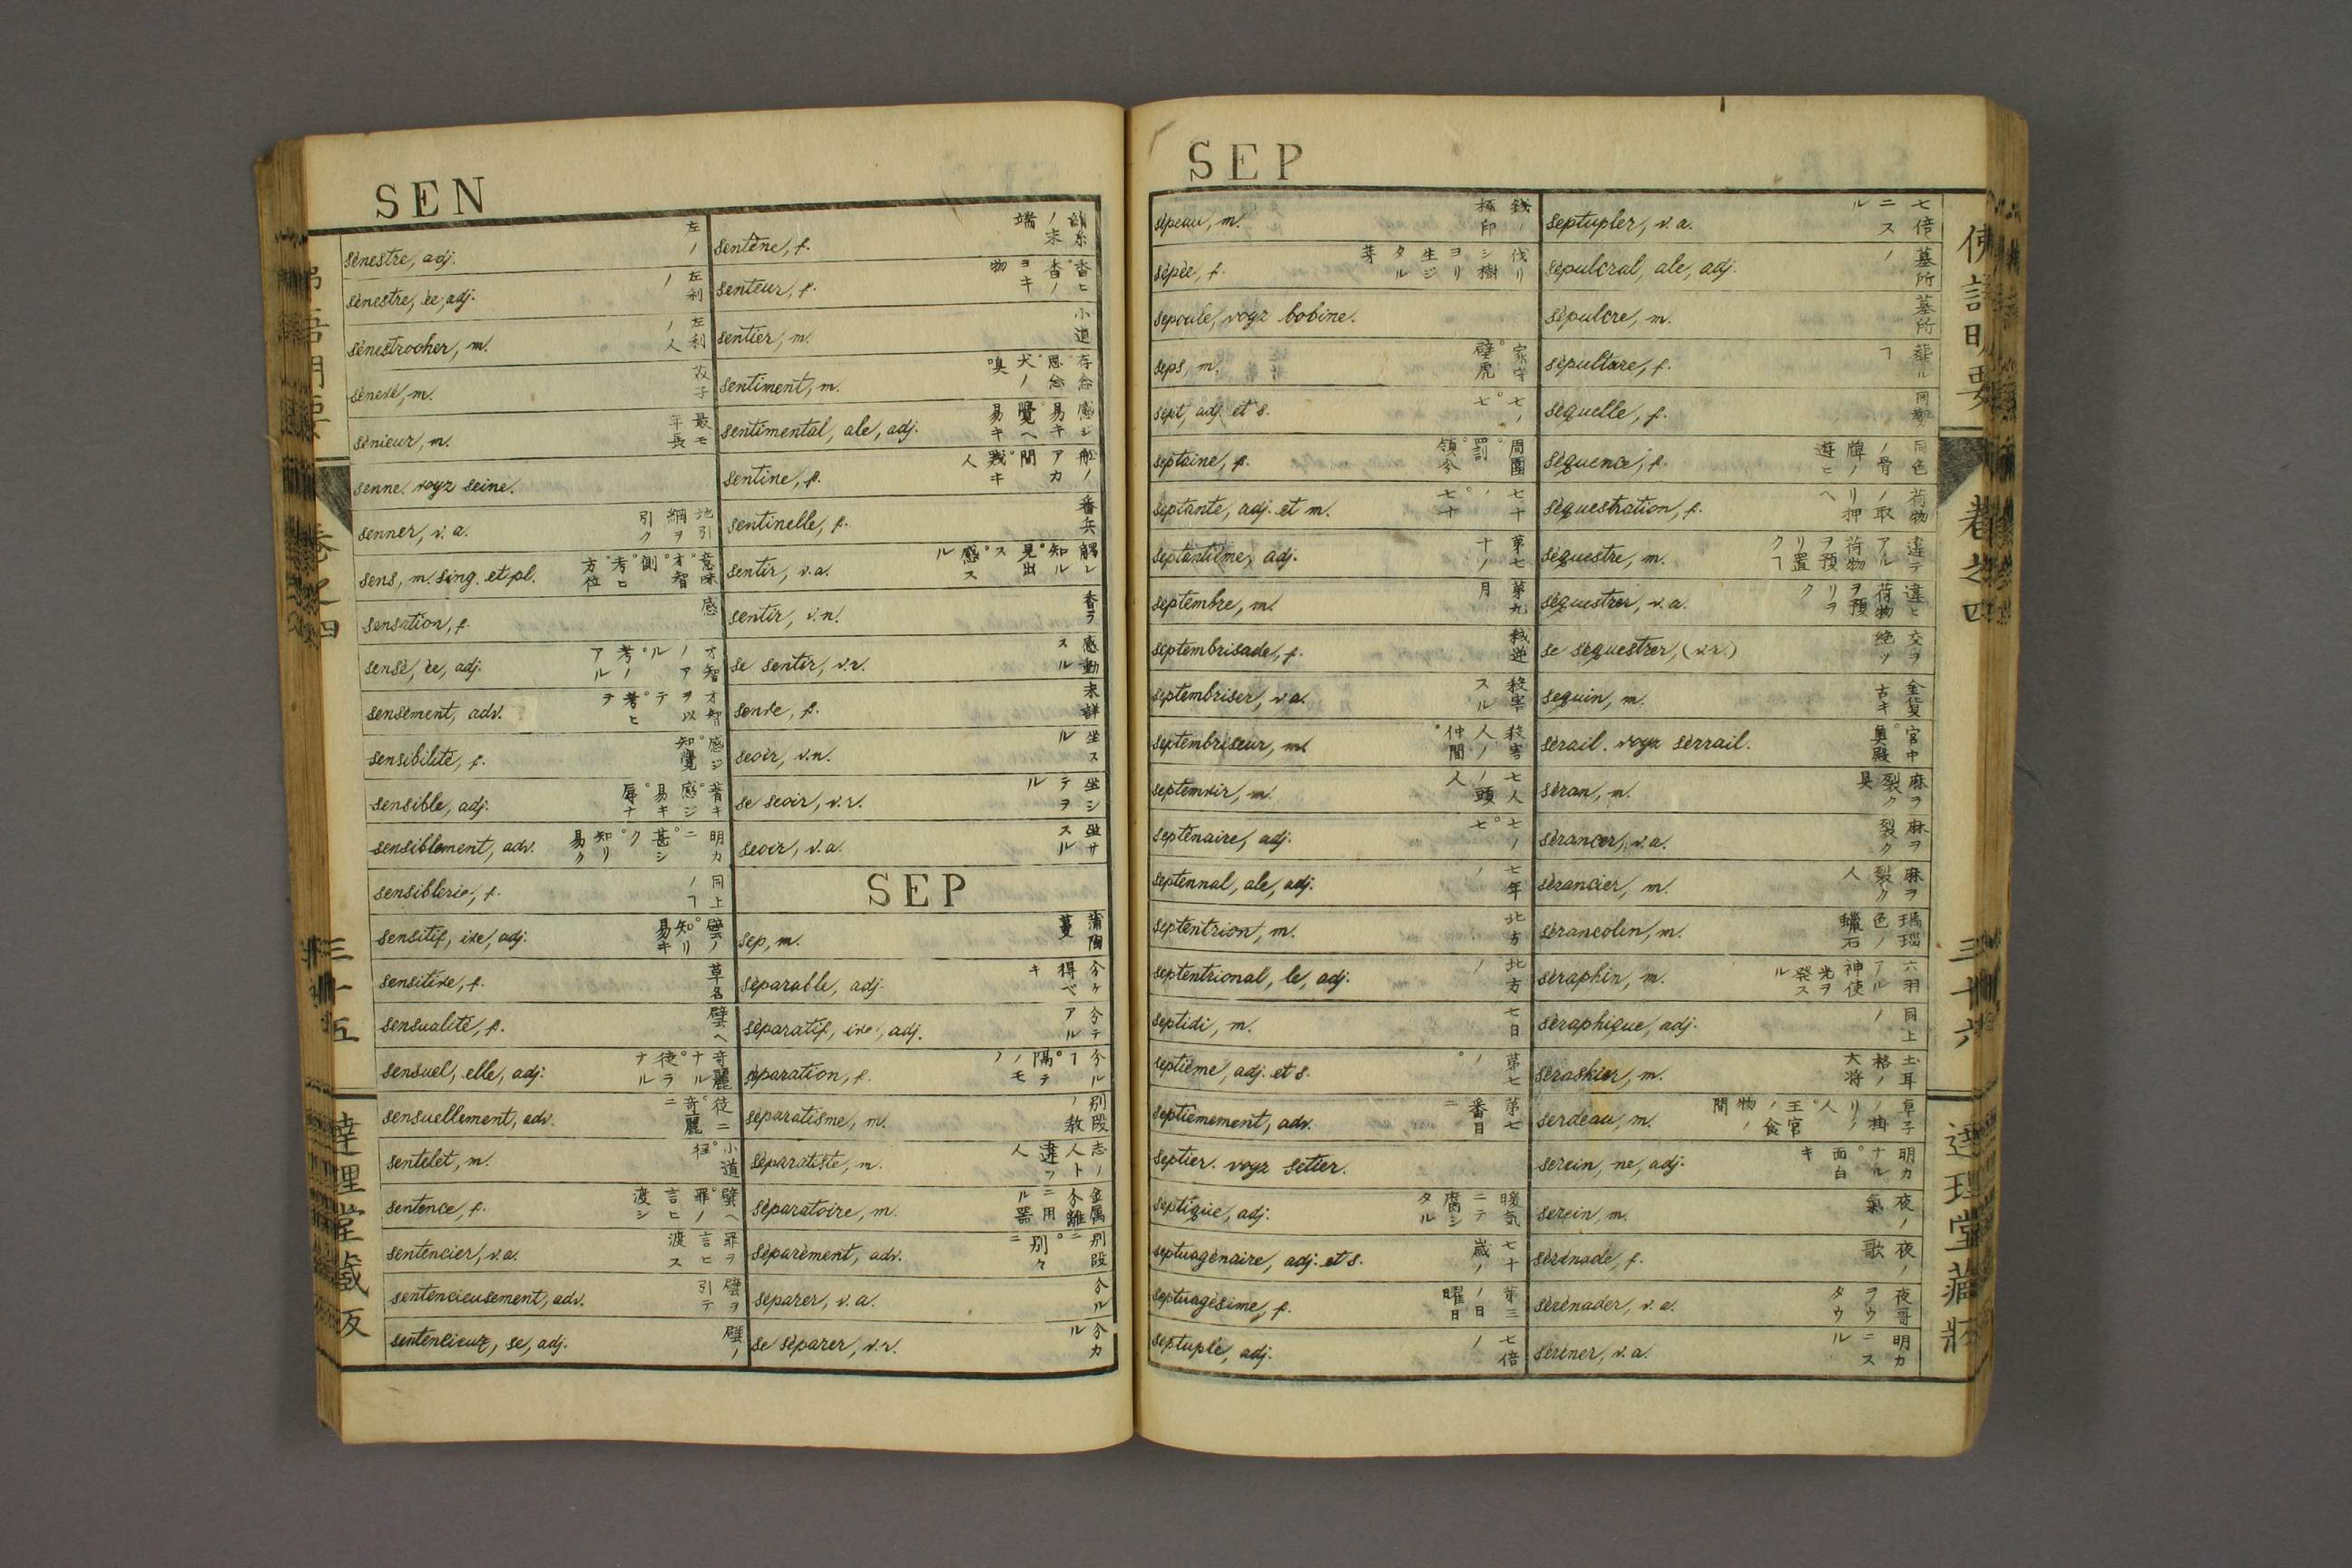 SEN
sènestre, adj. 左ノ
sènestre, èe, adj. 左利ノ
sènestrocher, m. 左利ノ人
sènevè, m. 芥子
sènieur, m. 最モ年長
senne. voyz seine.
senner, v. a. 地引綱ヲ引ク
sens, m. sing. et pl. 意味°才智°側°考ヒ°方位
sensation, f. 感
sensè, èe, adj. 才智アルノ°考ノアル
sensèment, adv. 才智ヲ以テ°考ヒテ
sensibilitè, f. 感ジ°知覺
sensible, adj. 感ジ易キ
sensiblement, adv. 明カニ°甚シク°知リ易ク
sensiblerie, f. 同上ノヿ
sensitif, ive, adj. 知リ易キ
sensitive, f. 草名
sensualitè, f.
sensuel, elle, adj. 奇麗ナルナ°徒ラナル
sensuellement, adv. 徒ニ°奇麗ニ
sentelet, m. 小道°徑
sentence, f. 譬ヘ°罪ノ言ヒ渡シ
sentencier, v. a. 罪ヲ言ヒ渡ス
sentencieusement, adv. 譬ヲ引テ
sentencieux, se, adj. 譬ノ
sentène, f. 絲ノ末端
senteur, f. 香ヒ°香ノヨキ物
sentier, m. 小道
sentiment, m. 存念°思念°犬ノ嗅
sentimental, ale, adj. 感ジ易キ°覺ヘ易キ
sentine, f. 船ノアカ間
sentinelle, f. 番兵
sentir, v. a. 觸レ知ル°見出ス°感スル
sentir, v. n. 香ヲ
se sentir, v. r. 感動スル
senve, f. 未詳
seoir, v. n. 坐スル
se seoir, v. r. 坐シテヲル
seoir, v. a. 坐サスル
SEP
sep, m. 蒲萄蔓
sèparable, adj. 分ケ得ベキ
sèparatif, ive, adj. 分テアル
sèparation, f. 分ルヿ°隔テノモノ
sèparatisme, m. 別段ノ教
sèparatiste, m. 志ノ人ト違フ人
sèparatoire, m. 金属分離ニ用ル器
sèparèment, adv. 別段ニ°別々ニ
sèparer, v. a. 分ル
se sèparer, v. r. 分カル
SEP
sèpeau, m. 錢ノ極印
sèpèe, f. 伐リシ樹ヨリ生ジタル芽
sepoule, voyz bobine.
seps, m. 家守°壁虎
sept, adj. et s. 七ノ°七
septaine, f.
septante, adj. et m. 七十ノ°七十
septantième, adj. 第七十ノ
septembre, m. 第九月
septembrisade, f. 弑逆
septembriser, v. a. 殺害スル
septembriseur, m. 殺害人ノ仲間°
septemvir, m. 七人ノ頭人
septènaire, adj. 七ノ°七
septennal, ale, adj. 七年ノ
septentrion, m. 北方
septentrional, le, adj. 北方ノ
septidi, m. 七日
septième, adj. et s. 第七ノ°
septièmement, adv. 第七番目ニ
septier. voyz setier.
septique, adj. 暖気ニテ腐シタル
septuagènaire, adj. et s. 七十歳ノ
septuagèsime, f. 第三ノ日曜日
septuple, adj. 七倍ノ
septupler, v. a. 七倍ニスル
sèpulcral, ale, adj. 墓所ノ
sèpulcre, m. 墓所
sèpulture, f. 葬ルヿ
sèquelle, f. 同勢
sèquence, f. 同色ノ骨牌ノ遊ヒ
sèquestration, f. 荷物ノ取リ押ヘ
sèquestre, m. 違テアル荷物ヲ預リ置クヿ
sèquestrer, v. a. 違ヒ荷物ヲ預リヲク
se sèquestrer, (v. r.) 交ヲ絶ツ
sequin, m. 古キ金貨
sèrail. voyz sèrrail. 宮中°奥殿
sèran, m. 麻ヲ裂ク具
sèrancer, v. a. 麻ヲ裂ク
sèrancier, m. 麻ヲ裂ク人
sèrancolin, m. 瑪瑙色ノ蠟石
sèraphin, m. 六羽アル神使光ヲ発スル
sèraphique, adj. 同上ノ
sèraskier, m. 土耳格ノ大将
serdeau, m.
serein, ne, adj. 明カナル°面白キ
serein, m. 夜ノ氣
sèrènade, f. 夜ノ歌
sèrènader, v. a. 夜哥ヲウタウ
sèrèner, v. a. 明カニスル
佛語明要
卷之四
三十六
達理堂藏版